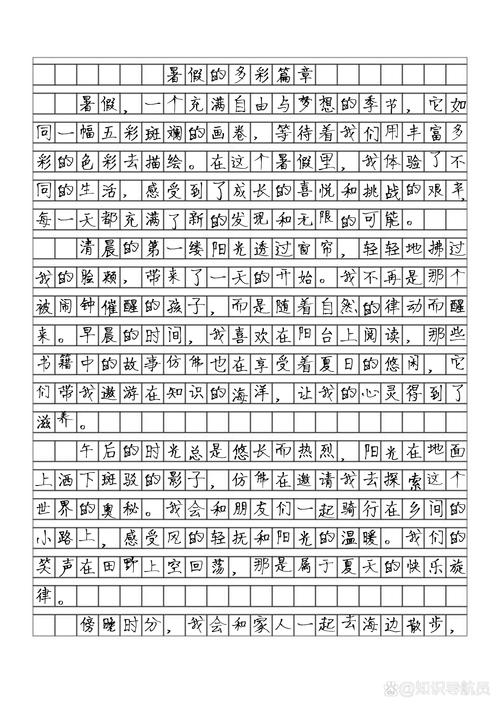 暑假的多彩篇章
暑假，一个充满自由与梦想的季节，它如
同一幅五彩斑斓的画卷，等待着我们用丰富多
彩的色彩去描绘。在这个暑假里，我体验了不
同的生活，感受到了成长的喜悦和挑战的艰辛，
每一天都充满了新的发现和无限的可能。
清晨的第一缕阳光透过窗帘，轻轻地拂过
我的脸颊，带来了一天的开始。我不再是那个
被闹钟催醒的孩子，而是随着自然的律动而醒
来。早晨的时间，我喜欢在阳台上阅读，那些
书籍中的故事仿佛也在享受着夏日的悠闲，它
们带我遨游在知识的海洋，让我的心灵得到了
滋养。
午后的时光总是悠长而热烈，阳光在地面
上洒下斑驳的影子，仿佛在邀请我去探索这个
世界的奥秘。我会和朋友们一起骑行在乡间的
小路上，感受风的轻抚和阳光的温暖。我们的
笑声在田野上空回荡，那是属于夏天的快乐旋
律。
傍晚时分，我会和家人一起去海边散步，
@知识导航员